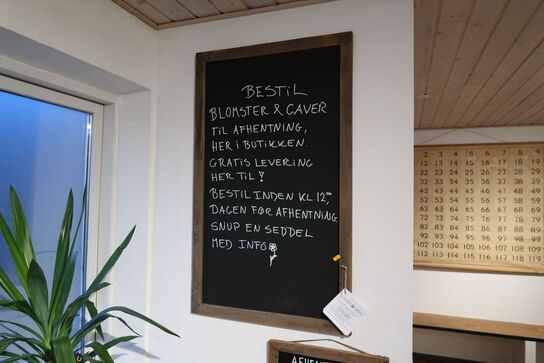 BESTIL
BLOMSTER & GAVER
TIL AFHENTNING,
HER I BUTIKKEN.
GRATIS LEVERING
HER TIL!
BESTIL INDEN KL. 12,00
DAGEN FØR AFHENTNING
SNUP EN SEDDEL
MED INFO
2 3 4 5 6 7 8 9
12 13 14 15 16 17 18 19
22 23 24 25 26 27 28 29
32 33 34 35 36 37 38 39
42 43 44 45 46 47 48 49
52 53 54 55 56 57 58 59
62 63 64 65 66 67 68 69
72 73 74 75 76 77 78 79
82 83 84 85 86 87 88 89
92 93 94 95 96 97 98 99
102 103 104 105 106 107 108 109
112 113 114 115 116 117 118